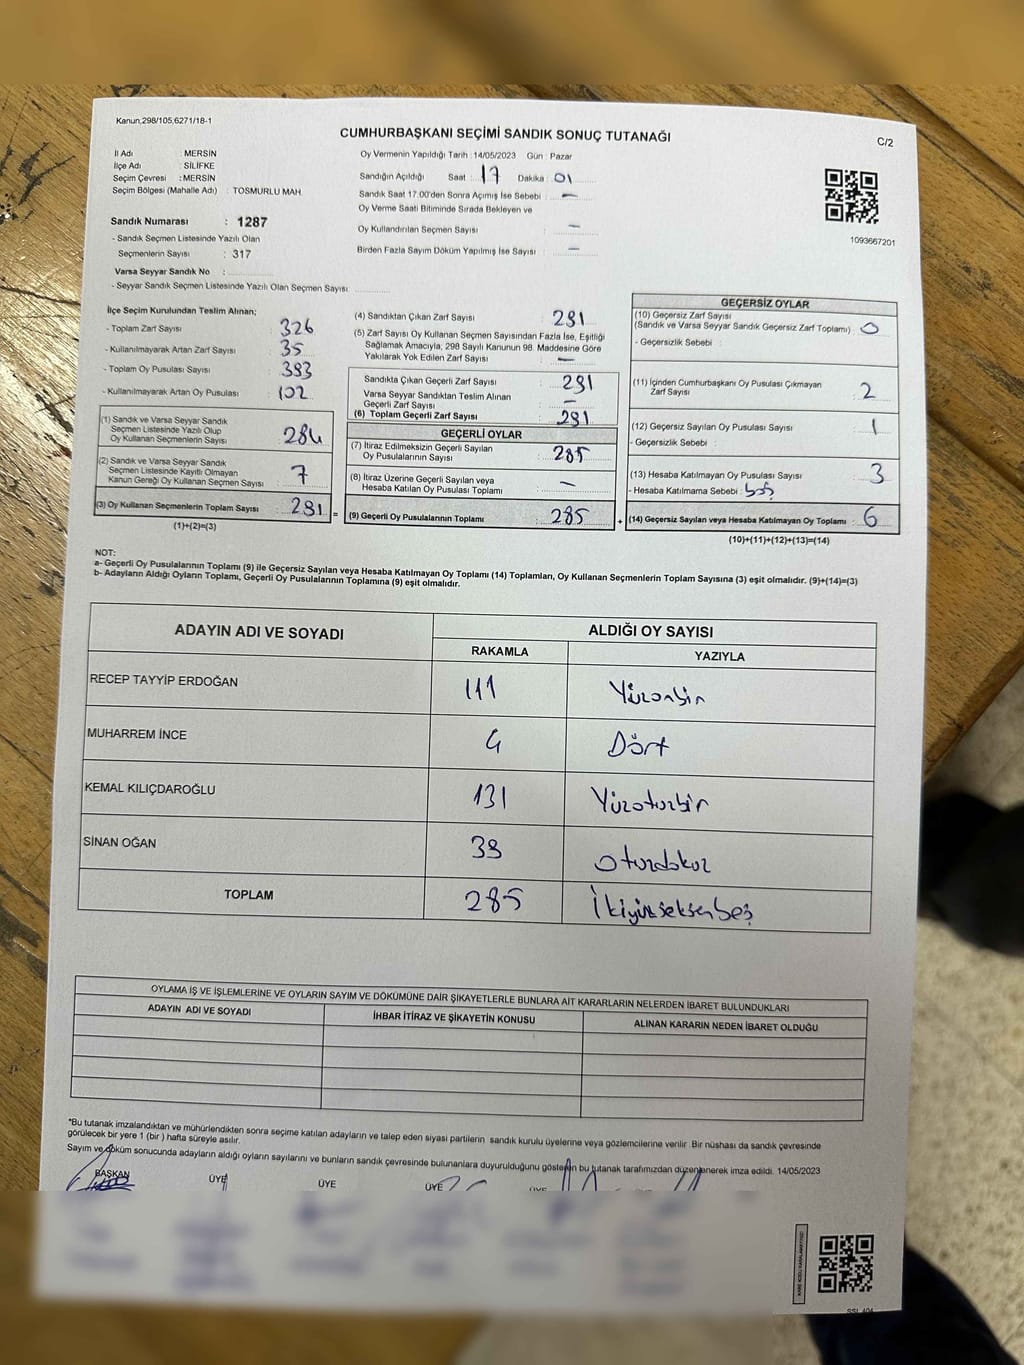 Kanun,298/105,6271/18-1
CUMHURBAŞKANI SEÇİMİ SANDIK SONUÇ TUTANAĞI
C/2
İl Adı : MERSİN
İlçe Adı : SİLİFKE
Seçim Çevresi : MERSİN
Seçim Bölgesi (Mahalle Adı) : TOSMURLU MAH.
Sandık Numarası : 1287
- Sandık Seçmen Listesinde Yazılı Olan
Seçmenlerin Sayısı : 317
Varsa Seyyar Sandık No :
- Seyyar Sandık Seçmen Listesinde Yazılı Olan Seçmen Sayısı:
Oy Vermenin Yapıldığı Tarih : 14/05/2023 Gün : Pazar
Sandığın Açıldığı Saat : 17 Dakika : 01
Sandık Saat 17.00'den Sonra Açımış İse Sebebi : —
Oy Verme Saati Bitiminde Sırada Bekleyen ve
Oy Kullandırılan Seçmen Sayısı : —
Birden Fazla Sayım Döküm Yapılmış İse Sayısı : —
1093667201
İlçe Seçim Kurulundan Teslim Alınan;
- Toplam Zarf Sayısı : 326
- Kullanılmayarak Artan Zarf Sayısı : 35
- Toplam Oy Pusulası Sayısı : 393
- Kullanılmayarak Artan Oy Pusulası : 102
(1) Sandık ve Varsa Seyyar Sandık
Seçmen Listesinde Yazılı Olup
Oy Kullanan Seçmenlerin Sayısı : 284
(2) Sandık ve Varsa Seyyar Sandık
Seçmen Listesinde Kayıtlı Olmayan
Kanun Gereği Oy Kullanan Seçmen Sayısı : 7
(3) Oy Kullanan Seçmenlerin Toplam Sayısı : 291 =
(1)+(2)=(3)
(4) Sandıktan Çıkan Zarf Sayısı : 291
(5) Zarf Sayısı Oy Kullanan Seçmen Sayısından Fazla İse, Eşitliği
Sağlamak Amacıyla, 298 Sayılı Kanunun 98. Maddesine Göre
Yakılarak Yok Edilen Zarf Sayısı : —
Sandıkta Çıkan Geçerli Zarf Sayısı : 291
Varsa Seyyar Sandıktan Teslim Alınan
Geçerli Zarf Sayısı : —
(6) Toplam Geçerli Zarf Sayısı : 291
GEÇERLİ OYLAR
(7) İtiraz Edilmeksizin Geçerli Sayılan
Oy Pusulalarının Sayısı : 285
(8) İtiraz Üzerine Geçerli Sayılan veya
Hesaba Katılan Oy Pusulası Toplamı : —
(9) Geçerli Oy Pusulalarının Toplamı : 285 +
GEÇERSİZ OYLAR
(10) Geçersiz Zarf Sayısı
(Sandık ve Varsa Seyyar Sandık Geçersiz Zarf Toplamı) : 0
- Geçersizlik Sebebi :
(11) İçinden Cumhurbaşkanı Oy Pusulası Çıkmayan
Zarf Sayısı : 2
(12) Geçersiz Sayılan Oy Pusulası Sayısı : 1
- Geçersizlik Sebebi :
(13) Hesaba Katılmayan Oy Pusulası Sayısı : 3
- Hesaba Katılmama Sebebi : boş
(14) Geçersiz Sayılan veya Hesaba Katılmayan Oy Toplamı : 6
(10)+(11)+(12)+(13)=(14)
NOT:
a- Geçerli Oy Pusulalarının Toplamı (9) ile Geçersiz Sayılan veya Hesaba Katılmayan Oy Toplamı (14) Toplamları, Oy Kullanan Seçmenlerin Toplam Sayısına (3) eşit olmalıdır. (9)+(14)=(3)
b- Adayların Aldığı Oyların Toplamı, Geçerli Oy Pusulalarının Toplamına (9) eşit olmalıdır.
ADAYIN ADI VE SOYADI ALDIĞI OY SAYISI
RAKAMLA YAZIYLA
RECEP TAYYİP ERDOĞAN 111 Yüzonbir
MUHARREM İNCE 4 Dört
KEMAL KILIÇDAROĞLU 131 Yüzotuzbir
SİNAN OĞAN 39 Otuzdokuz
TOPLAM 285 İkiyüzseksenbeş
OYLAMA İŞ VE İŞLEMLERİNE VE OYLARIN SAYIM VE DÖKÜMÜNE DAİR ŞİKAYETLERLE BUNLARA AİT KARARLARIN NELERDEN İBARET BULUNDUKLARI
ADAYIN ADI VE SOYADI İHBAR İTİRAZ VE ŞİKAYETİN KONUSU ALINAN KARARIN NEDEN İBARET OLDUĞU
*Bu tutanak imzalandıktan ve mühürlendikten sonra seçime katılan adayların ve talep eden siyasi partilerin sandık kurulu üyelerine veya gözlemcilerine verilir. Bir nüshası da sandık çevresinde
görülecek bir yere 1 (bir) hafta süreyle asılır.
Sayım ve döküm sonucunda adayların aldığı oyların sayılarını ve bunların sandık çevresinde bulunanlara duyurulduğunu gösteren bu tutanak tarafımızdan düzenlenerek imza edildi. 14/05/2023
BAŞKAN ÜYE ÜYE ÜYE ÜYE